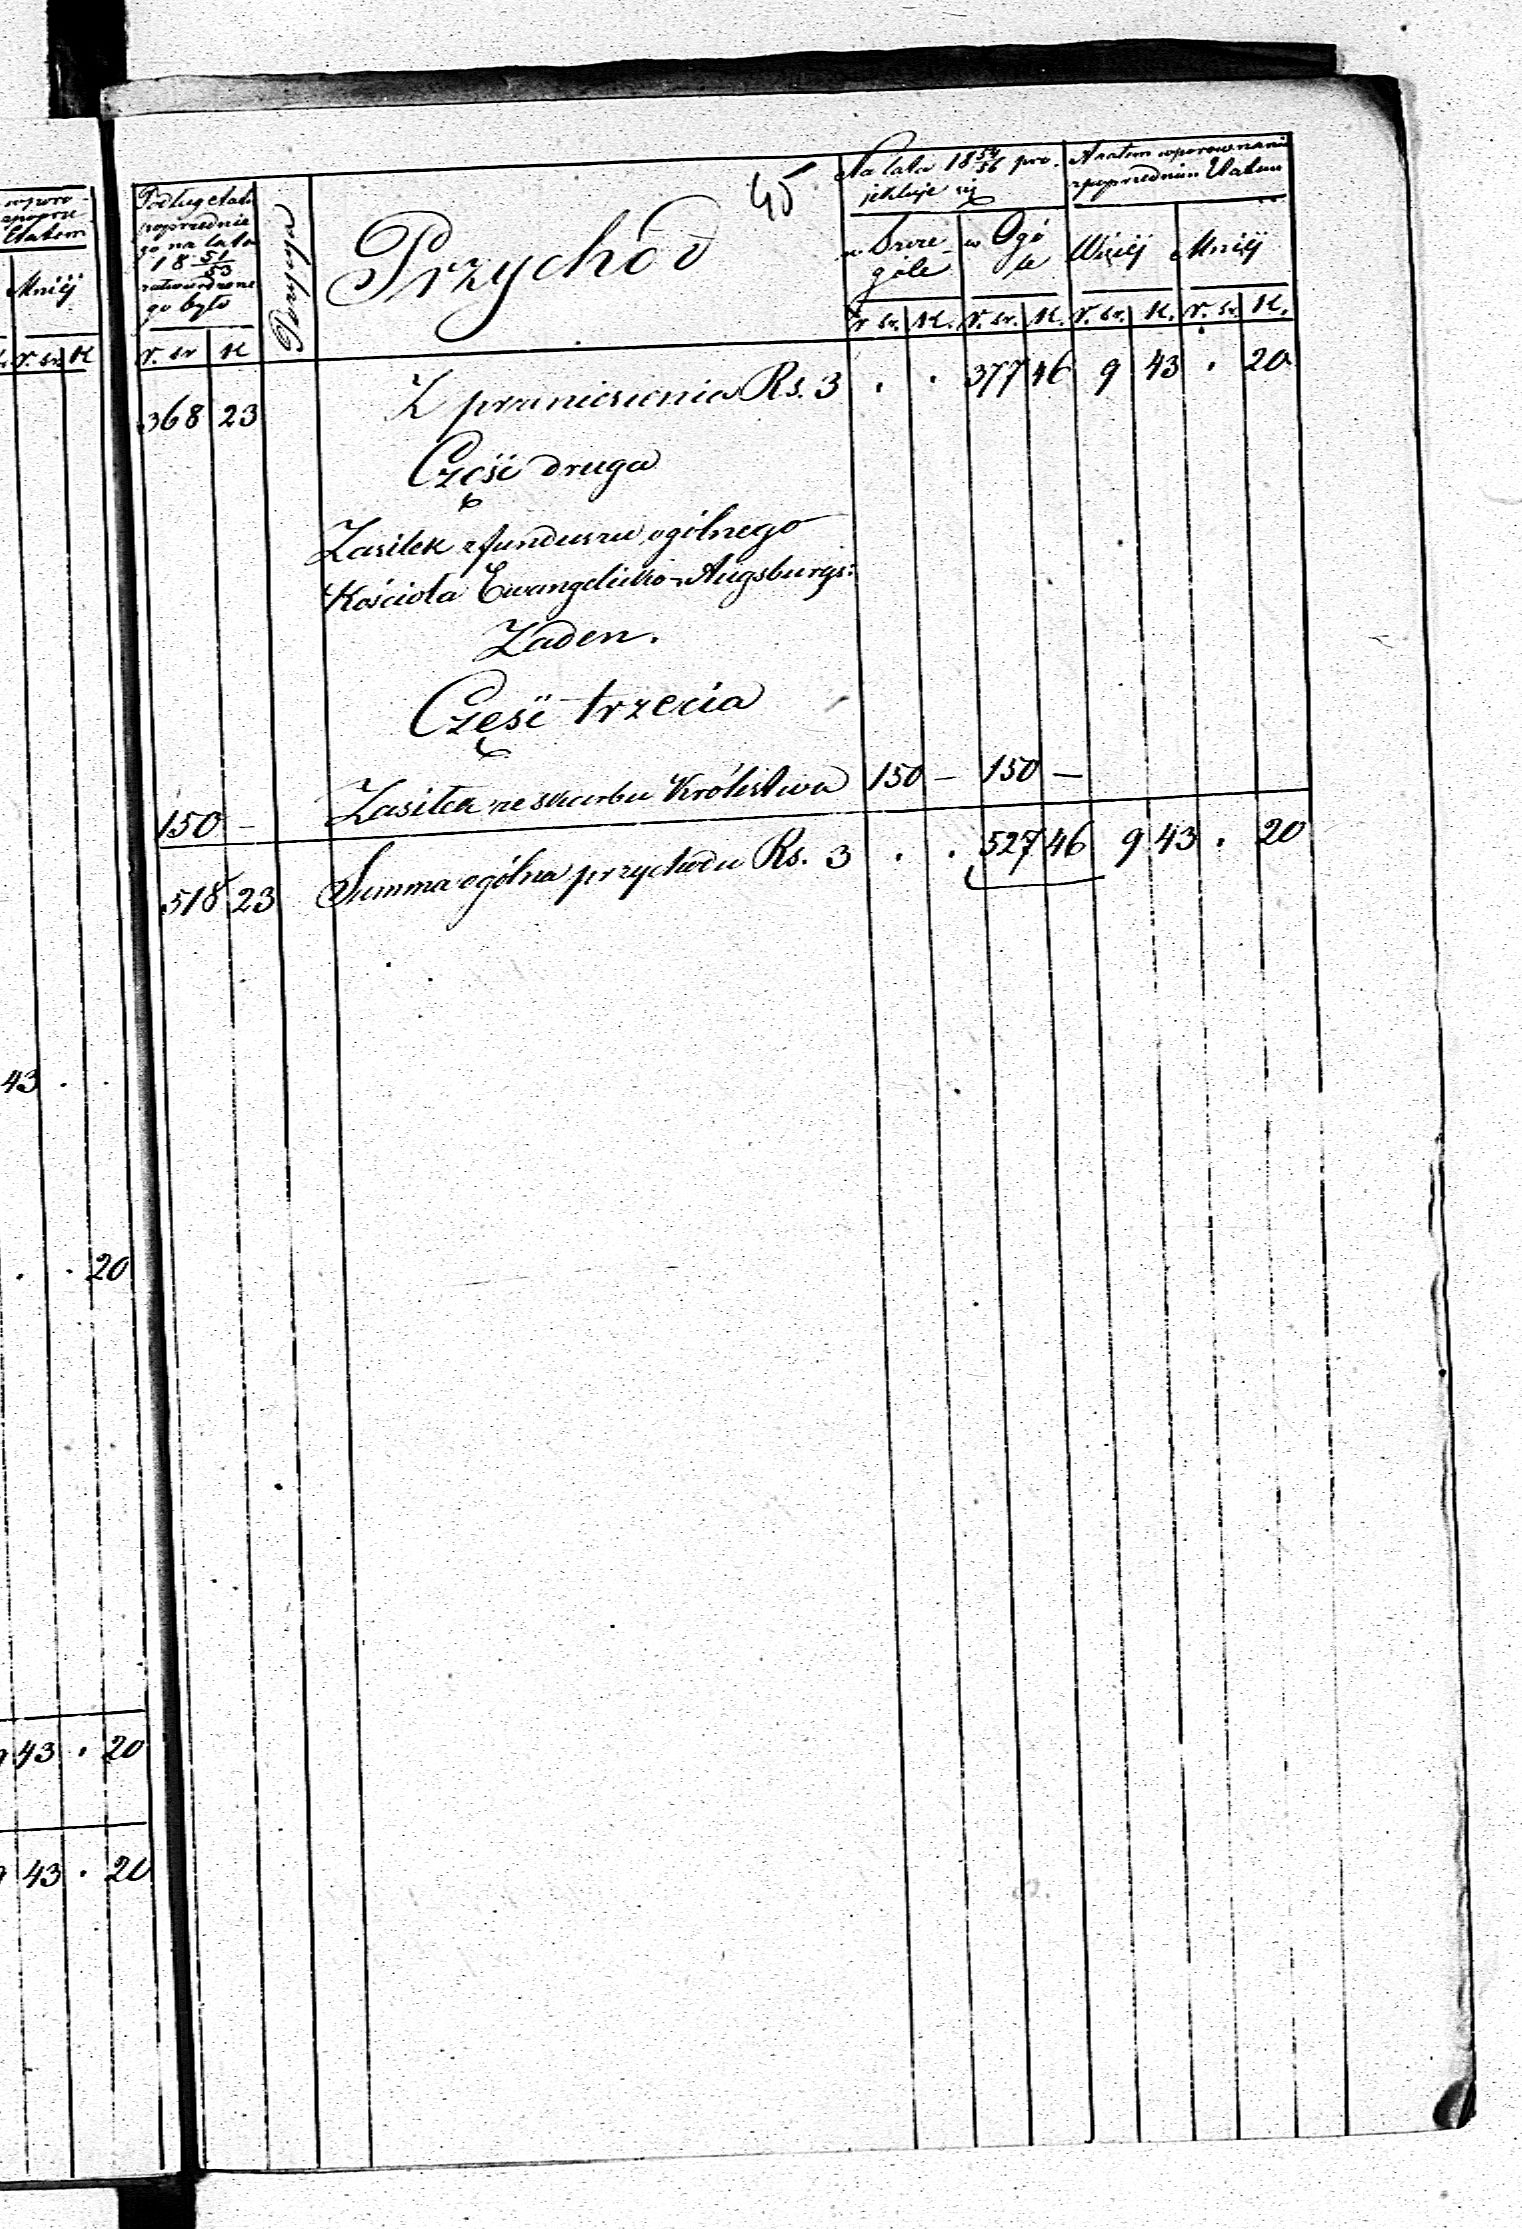 wporo
zpoprze
Etatem
Mniéj
r. sr. K
43 . .
. . 20
43 . 20
43 . 20
45
Podług etatu
poprzednie
go na lata
18 51/53
zatwierdzone
go było
r. sr K
Pozycya
Przychód
Na lata 18 54/56 pro
jektuje się
w Szcze
góle
w Ogó
le
A zatem wporownaniu
zpoprzednim Etatem
Więcéj
Mniéj
r. sr. K. r. sr. K. r. sr. K. r. sr. K.
368 23 Z przeniesienia Rs. 3 . . 377 46 9 43 . 20
Część druga
Zasiłek z funduszu ogólnego
Kościoła Ewangelicko-Augsburgs:
Żaden.
Część trzecia
150 – Zasiłek ze skarbu Królestwa 150 – 150 –
518 23 Summa ogólna przychodu Rs. 3 . . 527 46 9 43 . 20